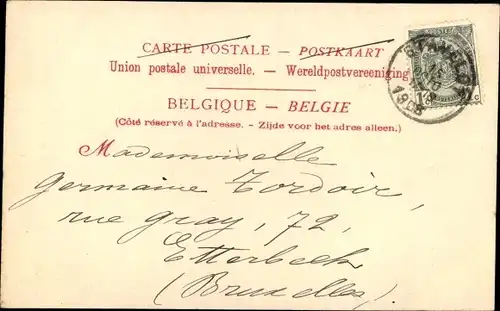 CARTE POSTALE — POSTKAART
Union postale universelle. — Wereldpostvereeniging
BELGIQUE — BELGIE
(Côté réservé à l'adresse. - Zijde voor het adres alleen.)
Mademoiselle
Germaine Tordoir,
rue Gray, 72,
Etterbeek
(Bruxelles)